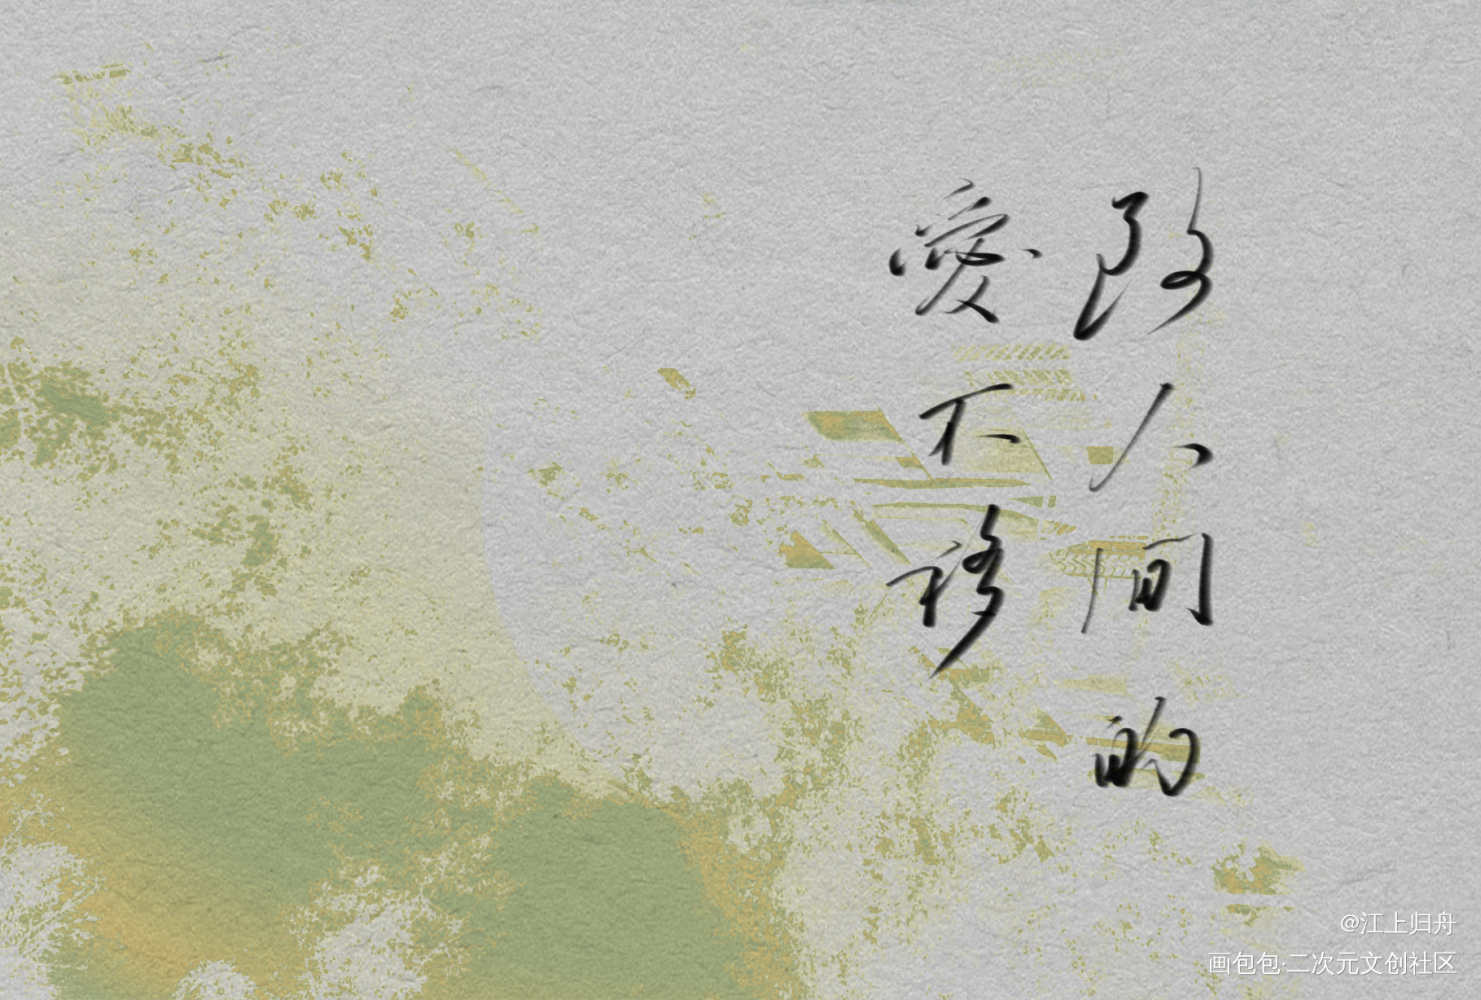 改人间的
愛不移
@江上归舟
画包包·二次元文创社区